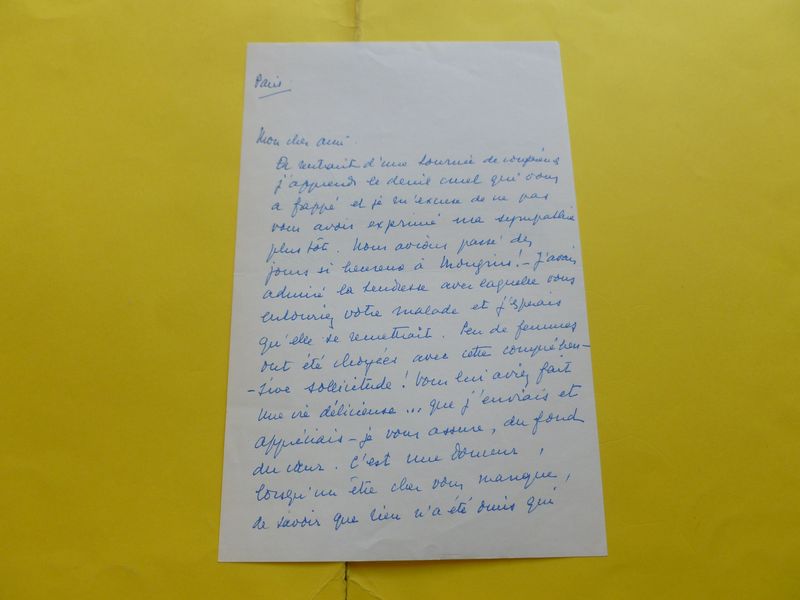 Paris.
Mon cher ami.
En rentrant d'une tournée de conférences
j'apprends le deuil cruel qui vous
a frappé et je m'excuse de ne pas
vous avoir exprimé ma sympathie
plus tôt. Nous avions passé des
jours si heureux à Mougins! - J'avais
admiré la tendresse avec laquelle vous
entouriez votre malade et j'espérais
qu'elle se remettrait. Peu de femmes
ont été choyées avec cette compréhen-
-sive sollicitude! Vous lui aviez fait
une vie délicieuse... que j'enviais et
appréciais - je vous assure, du fond
du cœur. C'est une douceur,
lorsqu'un être cher vous manque,
de savoir que rien n'a été omis qui